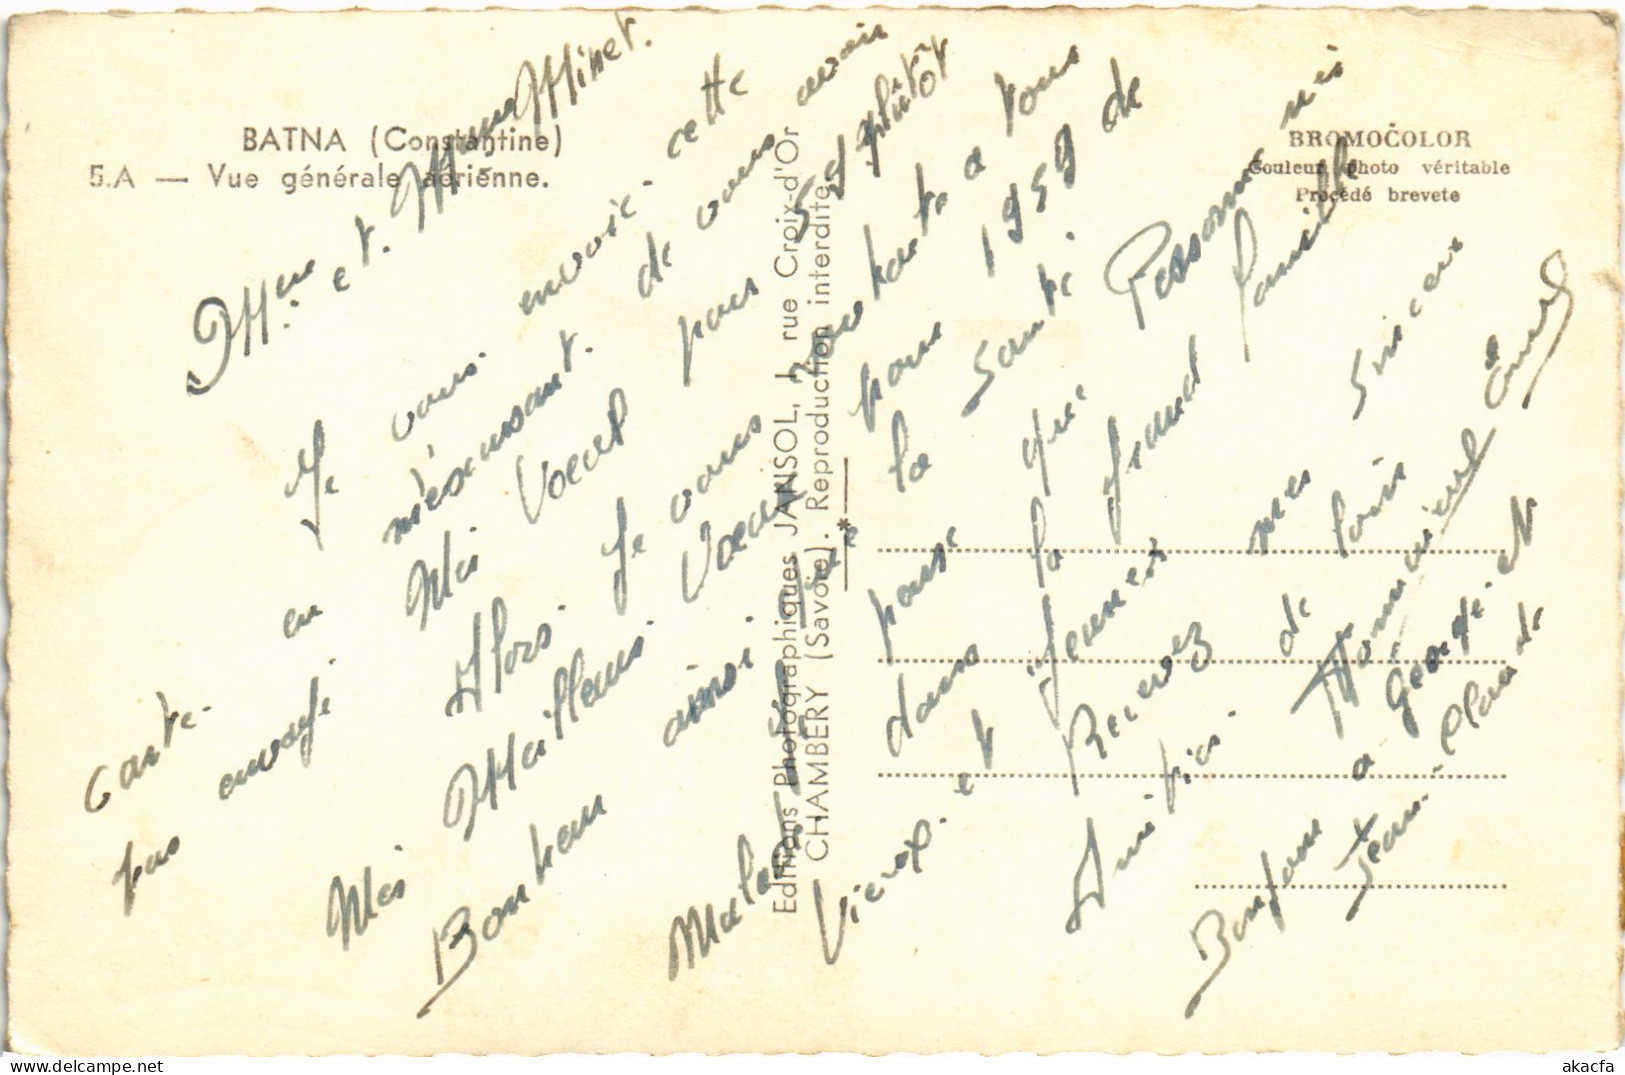 BATNA (Constantine)
5.A — Vue générale aérienne.
BROMOCOLOR
Couleur photo véritable
Procédé brevete
Editions Photographiques JANSOL, 1, rue Croix-d'Or
CHAMBERY (Savoie). Reproduction interdite
Mme et
Je vous envoie cette
carte en m'éxcusant de vous avoir
pas envoyé Mes Voeux pour 59 plutôt
Alors Je vous souhaite a tous
Mes Meilleurs Voeux pour 1959 de
Bonheur ainsi que la Santé
pense que Personne n'es
Malade dans la grand famille
Vieux et Jeunes
Recevez mes Sincere
Amitiés de loin
Bonjour a Georges et
Jean-Claude
akacfa